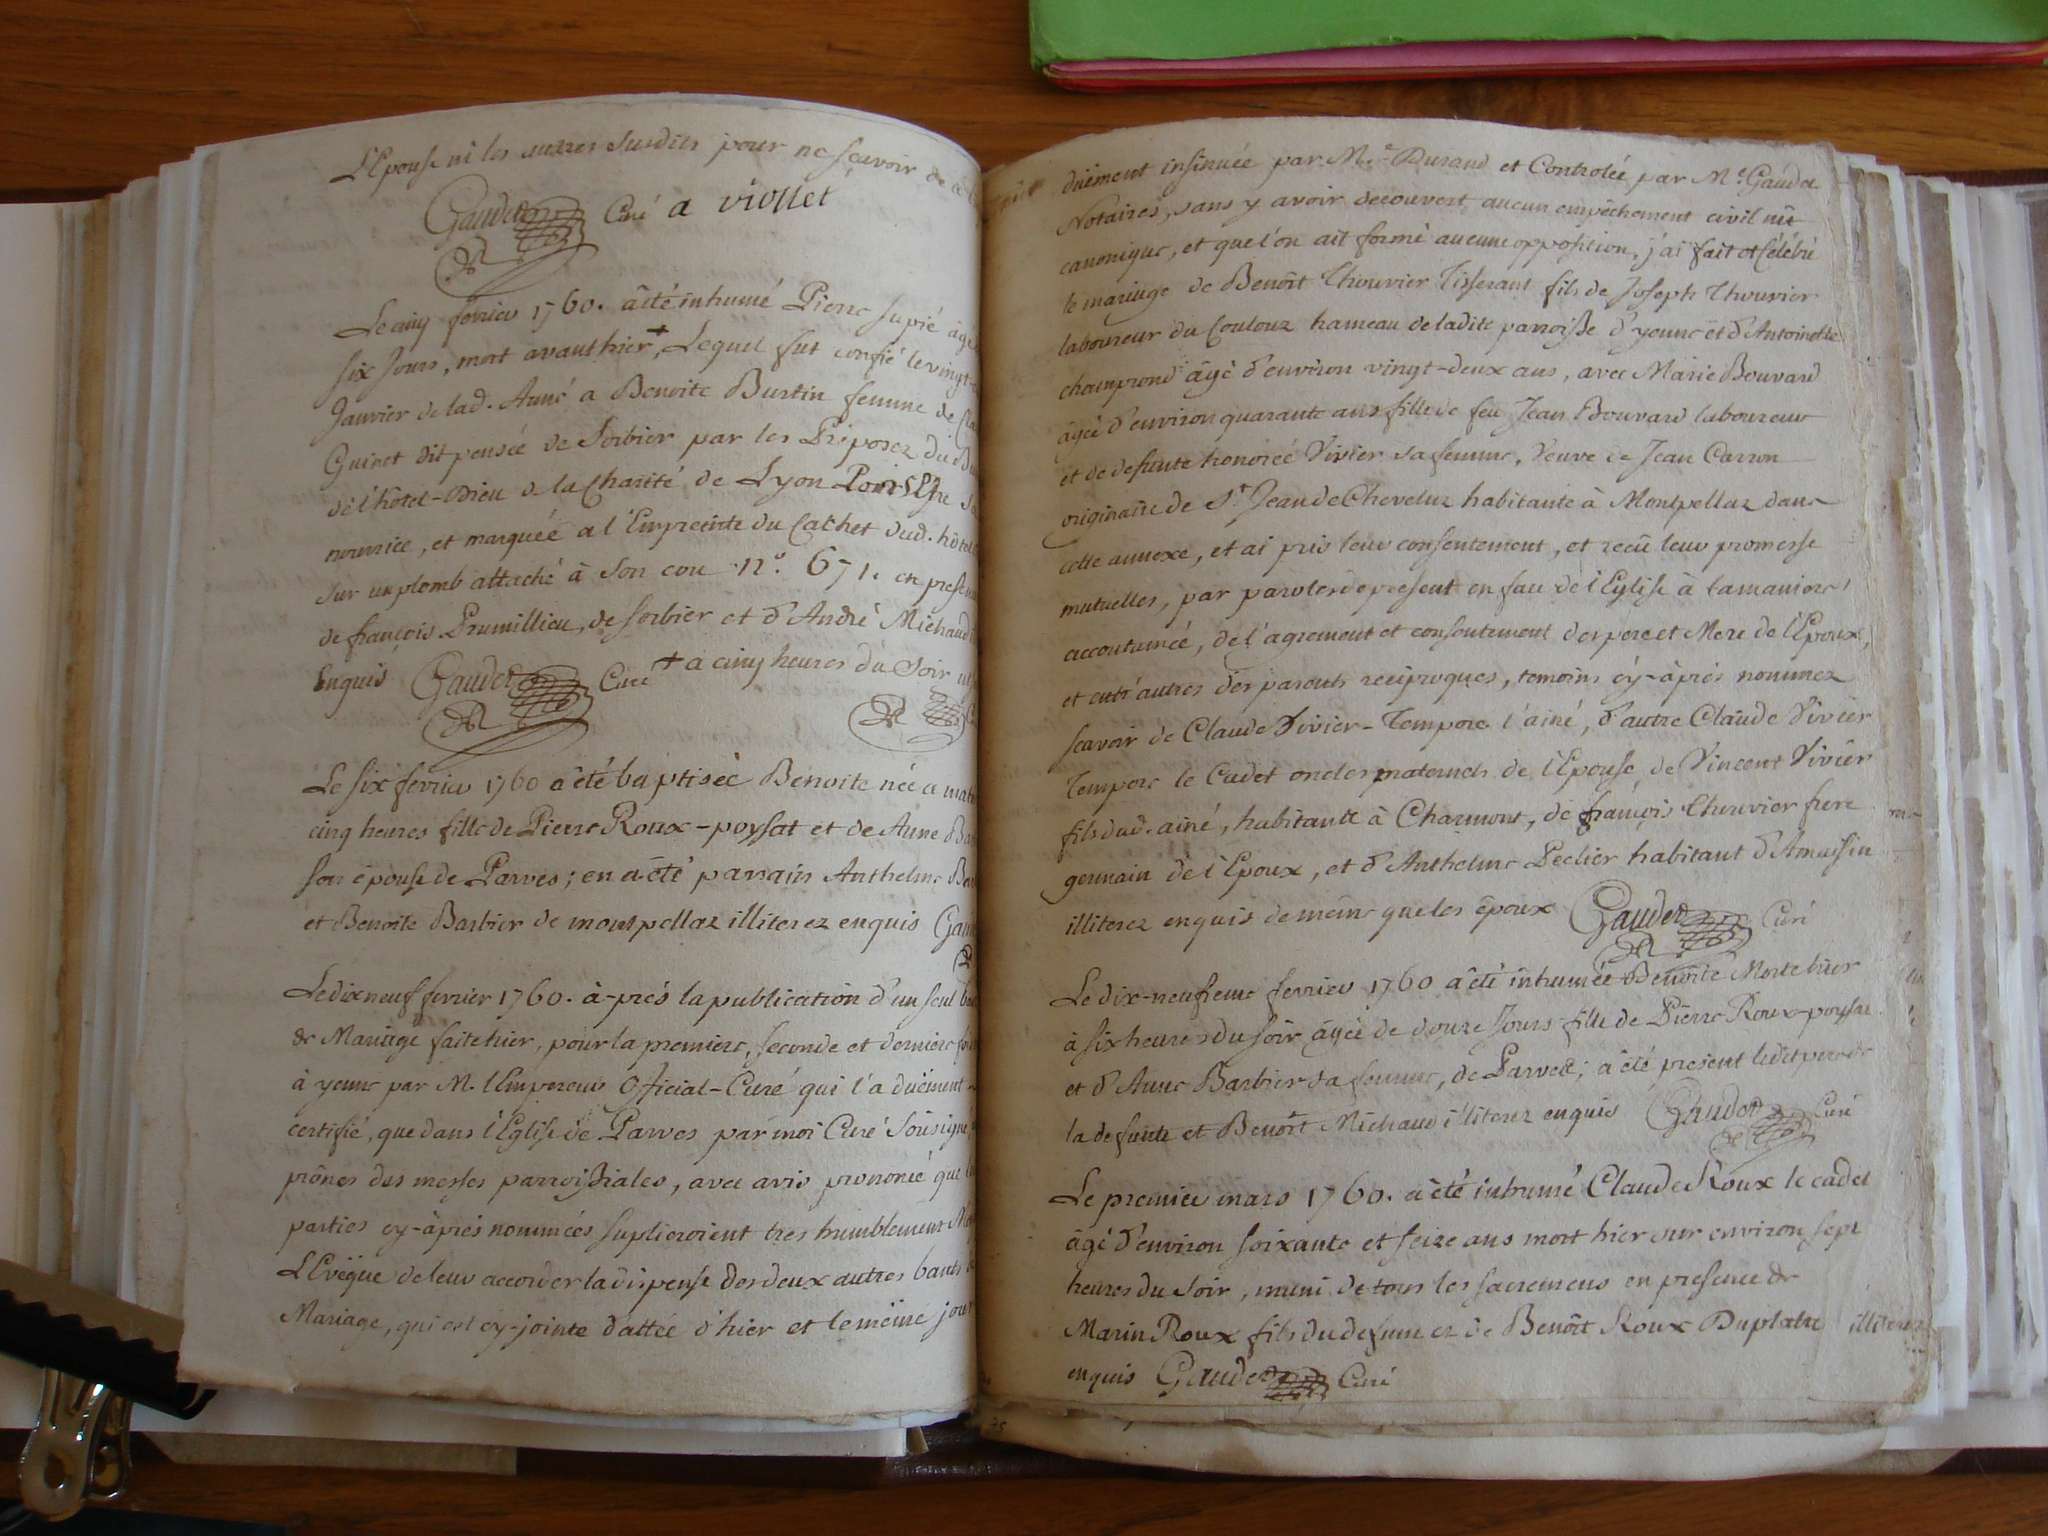 L'Epouse ni les autres susdits pour ne scavoir de
Gaudet Curé a viollet
Le cinq fevrier 1760. a été inhumé Pierre Supié âgé
six Jours, mort avanthier + Lequel fut confié le vingt-
Janvier de lad. Anné a Benoite Burtin femme de Cla
Guinet dit pensée de Sorbier par les Préposez du Bu
de l'hôtel-Dieu de la Charité de Lyon Pour Etre sa
nourrice, et marquée a l'Empreinte du Cachet dud. hôtel
sur un plomb attaché à son cou n.º 671. en presen
de françois Prumillieu, de sorbier et d'André Michaud
enquis Gaudet Curé + a cinq heures du Soir
Le six fevrier 1760 a été baptisée Benoite née a matin
cinq heures fille de Pierre Roux-poysat et de Anne Bar
son épouse de Parves; en a été parrain Anthelme Ben
et Benoite Barbier de montpellaz illiterez enquis Gaud
Le dixneuf fevrier 1760. à-prés la publication d'un seul ban
de Mariage faite hier, pour la premiere, seconde et derniere fois
à yenne par M. l'Empereur Official-Curé qui l'a duëment
certifié, que dans l'Eglise de Parves par moi Curé Soussigné
prônes des messes parroissiales, avec avis prononcé que les
parties cy-àprés nommées suplieroient tres humblement M
L'Evêque de leur accorder la dispense des deux autres bants de
Mariage, qui est cy-jointe dattée d'hier et le même jour
düement insinuée par M.e Durand et Controlée par M.e Gaudet
Notaires, sans y avoir decouvert aucun empêchement civil ni
canonique, et que l'on ait formé aucune opposition, j'ai fait et Célébré
le mariage de Benoît Thouvier Tisserant fils de Joseph Thouvier
laboureur du Coulouz hameau de ladite parroisse d'yenne et d'Antoinette
champrond âgé d'environ vingt-deux ans, avec Marie Bouvard
âgée d'environ quarante ans fille de feu Jean Bouvard laboureur
et de defunte honorée Vivier sa femme, veuve de Jean Carron
originaire de St Jean de Cheveluz habitante à Montpellaz dans
cette annexe, et ai pris leur consentement, et recû leur promesse
mutuelles, par paroles de present en face de l'Eglise à la maniere
accoutumée, de l'agrement et consentement des pere et Mere de l'Epoux,
et entr'autres des parents reciproques, temoins cy-àprés nommez
scavoir de Claude Vivier-Tempore l'ainé, d'autre Claude Vivier
Tempore le Cadet oncles maternels de l'Epouse, de Vincent Vivier
fils dud. ainé, habitants à Charmont, de françois Thouvier frere
germain de l'Epoux, et d'Anthelme Peclier habitant d'Amaissin
illiterez enquis de même que les époux Gaudet Curé
Le dix-neufieme fevrier 1760 a été inhumée Benoite Morte hier
à six heures du soir âgée de douze Jours fille de Pierre Roux-poysat
et d'Anne Barbier sa femme, de Parves; a été present ledit pere de
la defunte et Benoît Michaud illiterez enquis Gaudet Curé
Le premier mars 1760. a été inhumé Claude Roux le cadet
âgé d'environ soixante et seize ans mort hier sur environ sept
heures du Soir, muni de tous les sacremens en presence de
Marin Roux fils du defunt et de Benoît Roux Duplatre illiterez
enquis Gaudet Curé